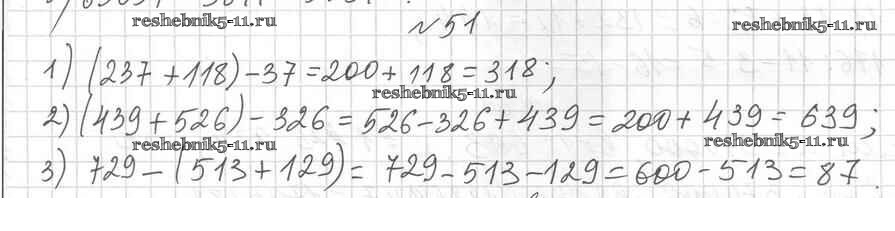 reshebnik5-11.ru
reshebnik5-11.ru
№ 51
1) (237 + 118) - 37 = 200 + 118 = 318;
reshebnik5-11.ru
2) (439 + 526) - 326 = 526 - 326 + 439 = 200 + 439 = 639;
reshebnik5-11.ru
reshebnik5-11.ru
3) 729 - (513 + 129) = 729 - 513 - 129 = 600 - 513 = 87.